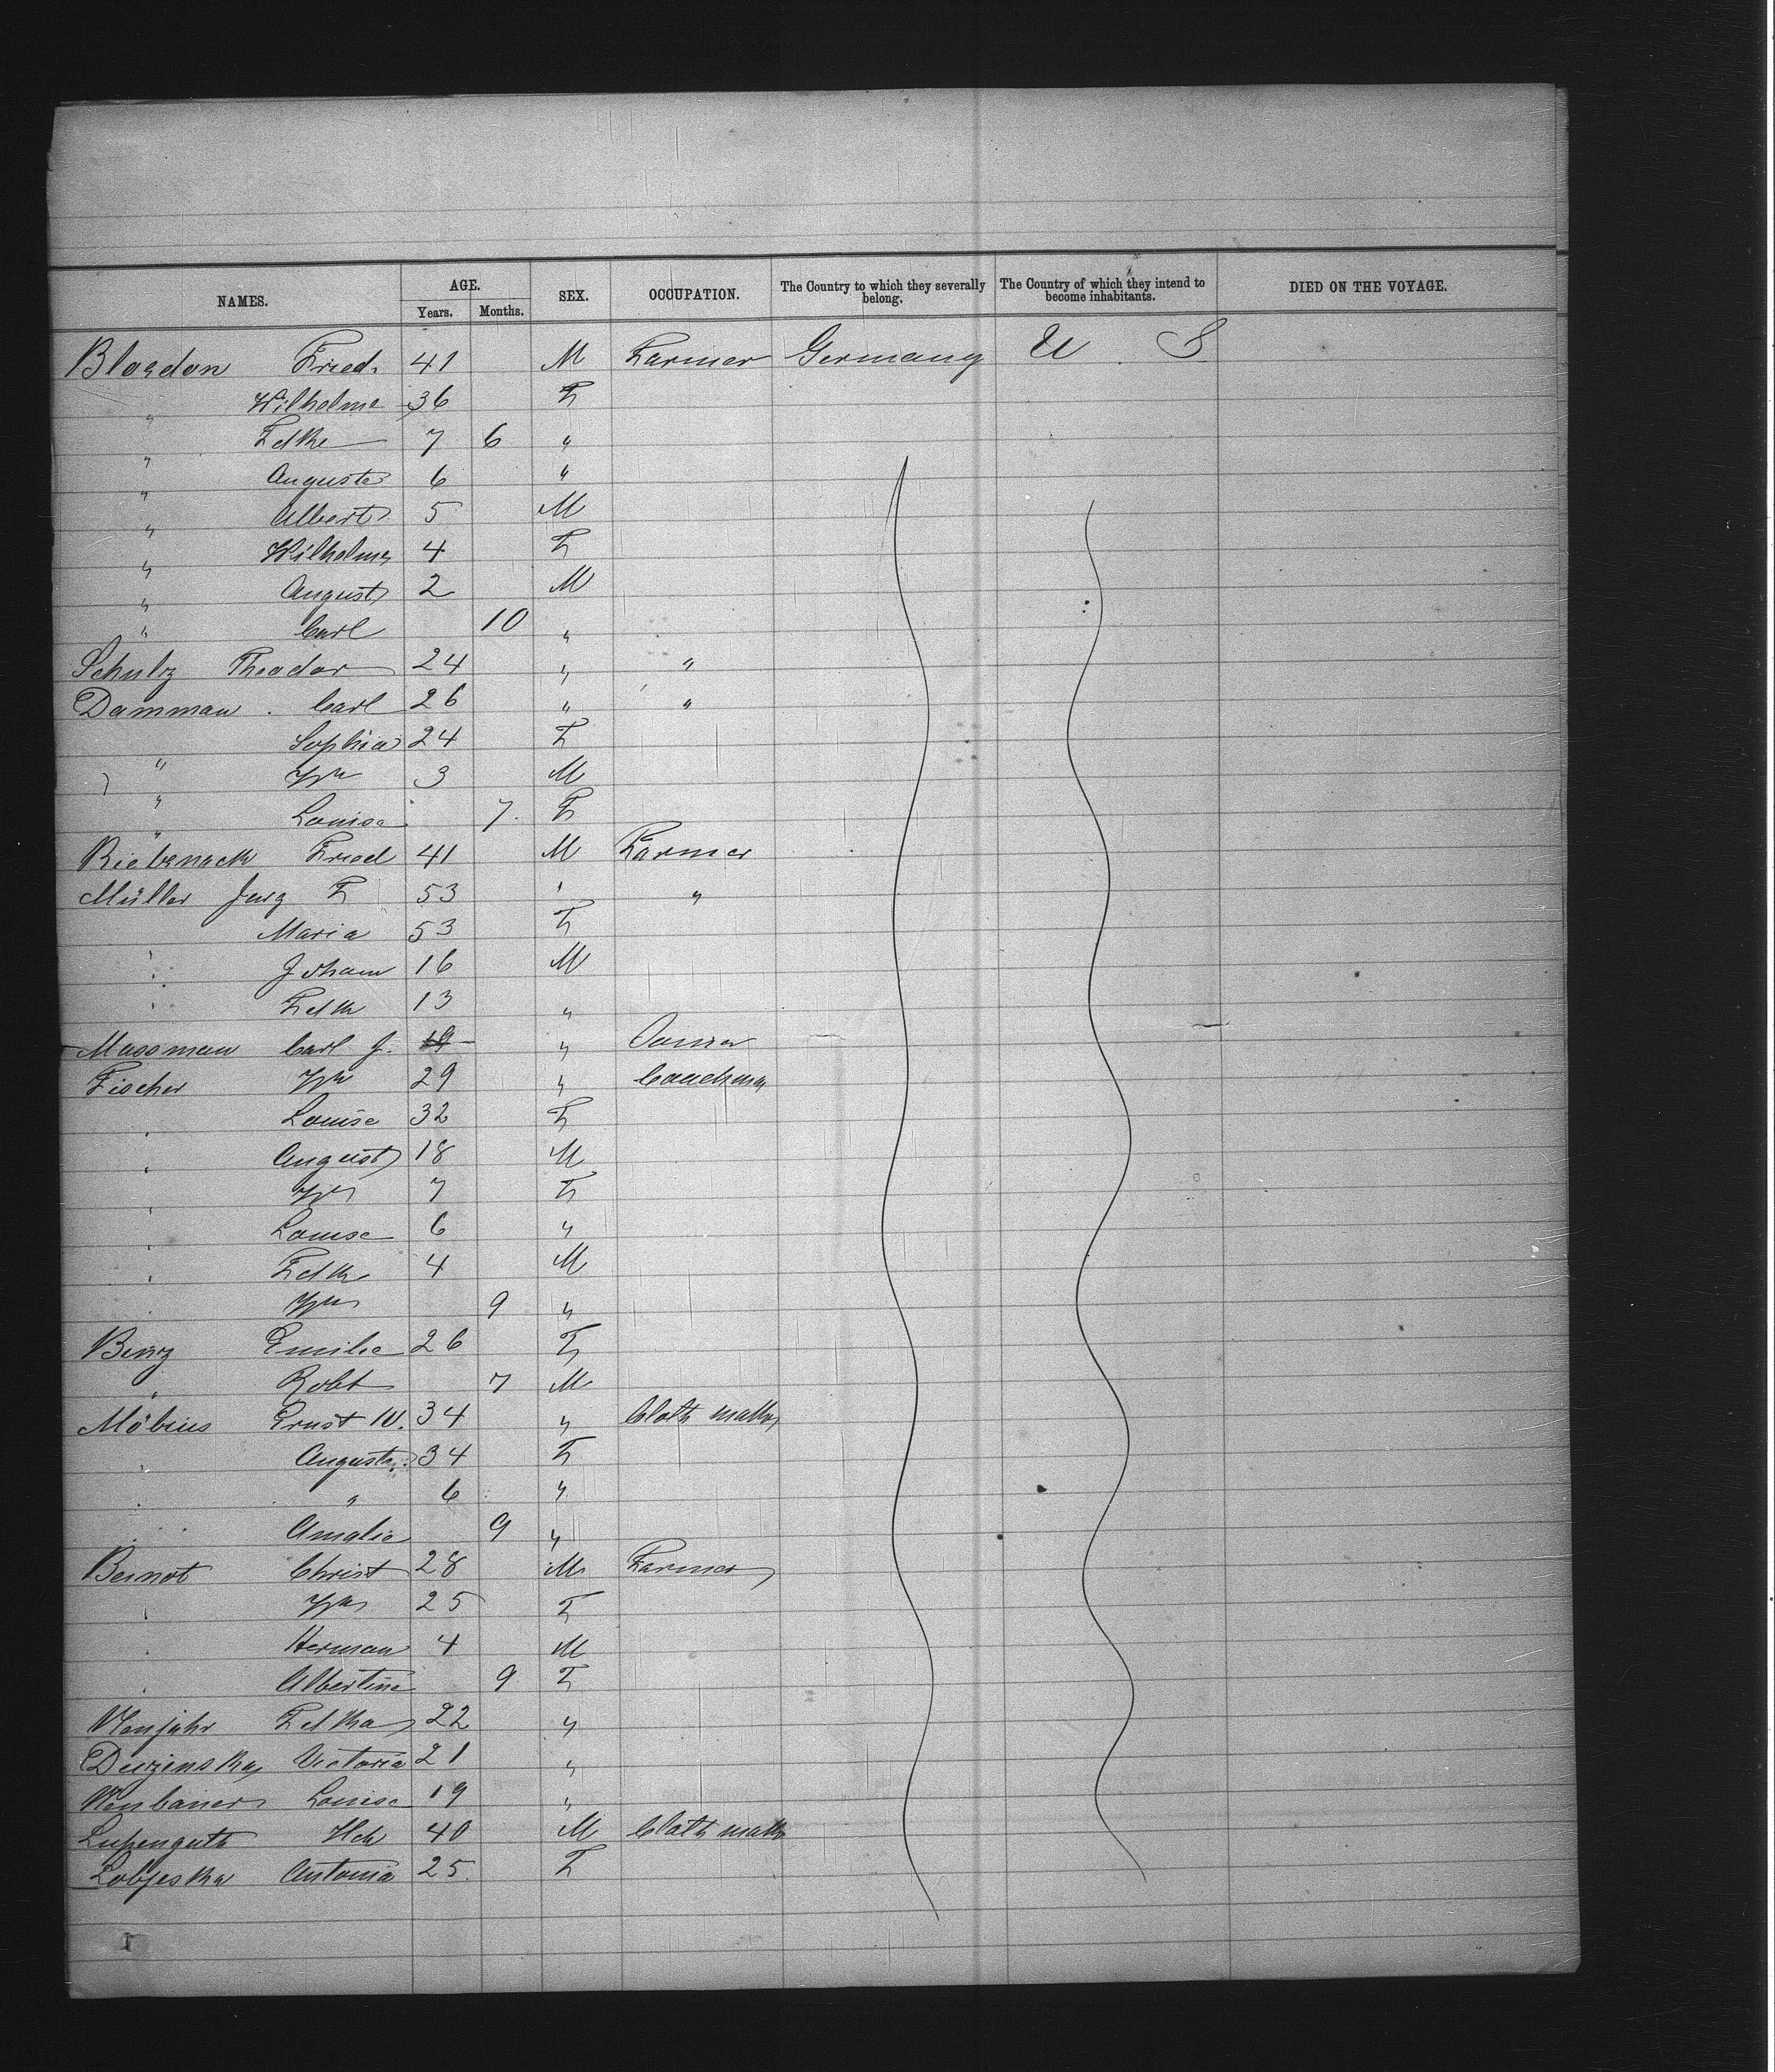 NAMES. AGE. SEX. OCCUPATION. The Country to which they severally belong. The Country of which they intend to become inhabitants. DIED ON THE VOYAGE.
Years. Months.
Fried. 41 M Farmer Germany U S
" Wilhelme 36 F
" Fdke 7 6 "
" Auguste 6 "
" Albert 5 M
" Wilhelm 4 F
" August 2 M
" Carl 10 "
Schulz Theodor 24 " "
Damman Carl 26 " "
" Sophia 24 F
" Wm 3 M
" Louisa 7 F
Fried 41 M Farmer
Müller Jurg F 53 " "
Maria 53 F
" Johann 16 M
" Fdk 13 "
Massman Carl J. 19 "
Fischer Wm 29 " Coachman
" Louise 32 F
" August 18 M
" Wm 7 F
" Louise 6 "
" Fdk 4 M
" Wm 9 "
Benz Emilie 26 F
" Robt 7 M
Möbius Ernst W. 34 " Cloth makr
" Auguste 34 F
" " 6 "
" Amalie 9 "
Christ 28 M Farmer
" Wm 25 F
" Herman 4 M
" Albertine 9 F
Neujahr Fdka 22 "
Victoria 21 "
Neubauer Louise 19 "
Hch 40 M Cloth makr
Antonia 25 F